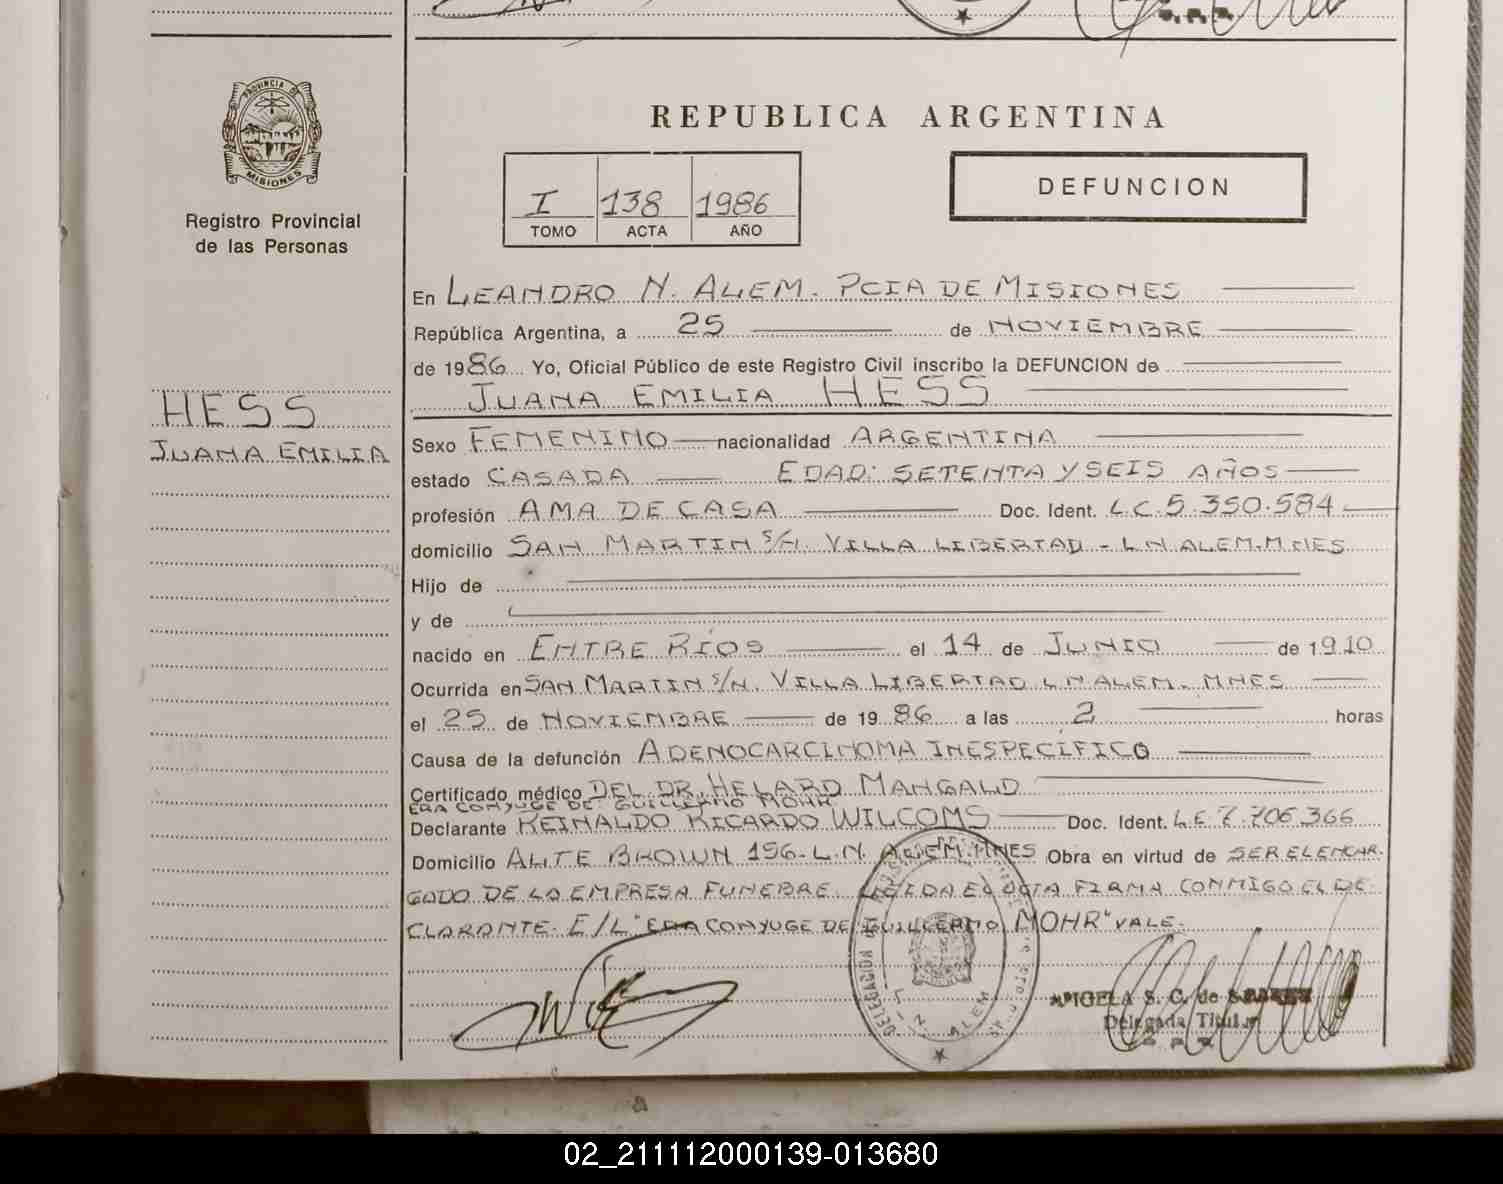 PROVINCIA DE
MISIONES
Registro Provincial
de las Personas
HESS
JUANA EMILIA
REPUBLICA ARGENTINA
I 138 1986
TOMO ACTA AÑO
DEFUNCION
En LEANDRO N. ALEM. PCIA DE MISIONES
República Argentina, a 25 de NOVIEMBRE
de 1986 Yo, Oficial Público de este Registro Civil inscribo la DEFUNCION de
JUANA EMILIA HESS
Sexo FEMENINO nacionalidad ARGENTINA
estado CASADA EDAD: SETENTA Y SEIS AÑOS
profesión AMA DE CASA Doc. Ident. L.C. 5.350.584
domicilio SAN MARTIN S/N. VILLA LIBERTAD - L N ALEM. MNES
Hijo de
y de
nacido en ENTRE RÍOS el 14 de JUNIO de 1910
Ocurrida en SAN MARTIN S/N. VILLA LIBERTAD L N ALEM. MNES
el 25 de NOVIEMBRE de 1986 a las 2 horas
Causa de la defunción ADENOCARCINOMA INESPECÍFICO
Certificado médico DEL DR. HELARD MANGALD
ERA CONYUGE DE GUILLERMO MOHR
Declarante REINALDO RICARDO WILCOMS Doc. Ident. L.E 7.706.366
Domicilio ALTE BROWN 156-L.N. ALEM. MNES Obra en virtud de SER EL ENCAR-
GADO DE LA EMPRESA FUNEBRE. LEIDA EL ACTA FIRMA CONMIGO EL DE-
CLARANTE. E/L "ERA CONYUGE DE GUILLERMO MOHR" VALE.
DELEGACION DEL
L. N. ALEM
ANGELA S. C. de
Delegada Titular
02_211112000139-013680